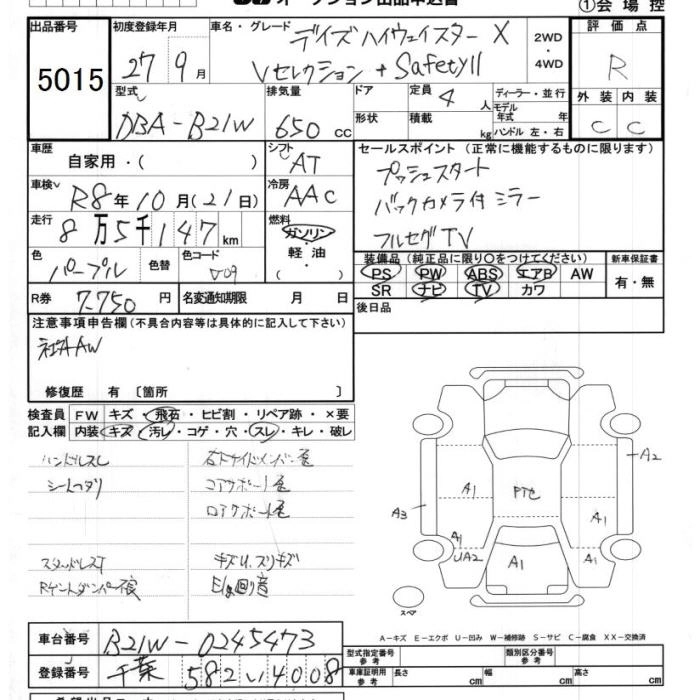 オークション出品申込書
①会場控
出品番号
5015
初度登録年月
27年9月
車名・グレード
デイズハイウェイスター X
Vセレクション+SafetyII
2WD
・
4WD
評価点
R
型式
DBA-B21W
排気量
650 cc
ドア
形状
定員 4 人
積載 kg
ディーラー・並行
モデル
年式 年
ハンドル 左・右
外装 内装
C C
車歴
自家用・( )
シフト
AT
セールスポイント (正常に機能するものに限ります)
プッシュスタート
バックカメラ付ミラー
フルセグTV
車検
R8年10月(21日)
冷房
AAC
走行
8万5千147km
燃料
ガソリン
・
軽油
・( )
色
パープル
色替
色コード
装備品 (純正品に限り○をつけてください)
PS PW ABS エアB AW
SR ナビ TV カワ
新車保証書
有・無
R券
7,750円
名変通知期限 月 日
後日品
注意事項申告欄(不具合内容等は具体的に記入して下さい)
社外AW
修復歴 有 〔箇所 〕
検査員
記入欄
FW キズ・飛石・ヒビ割・リペア跡・×要
内装 キズ・汚レ・コゲ・穴・スレ・キレ・破レ
ハンドルスレ
シートヘタリ
コアサポート
スタッドレスT
キズU、スリキズ
Rゲートダンパー不良
Eg回り音
A2
A1
PTセ
A3
A1
A1
UA2
A1
A1
スペア
A−キズ E−エクボ U−凹み W−補修跡 S−サビ C−腐食 XX−交換済
車台番号
B21W-0245473
登録番号
千葉 582 い 4008
型式指定番号
参考
類別区分番号
参考
車庫証明用
参考
長さ cm
幅 cm
高さ cm